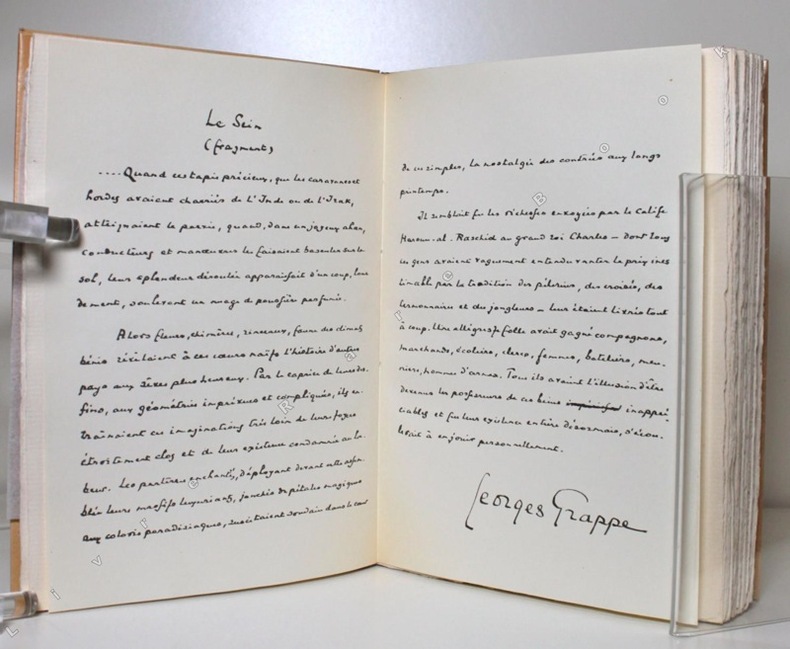 Le Sein
(fragment)
....Quand ces tapis précieux, que les caravanes et
hordes avaient charriés de l'Inde ou de l'Irak,
atteignaient le parvis, quand, dans un joyeux ahan,
conducteurs et manœuvres les faisaient basculer sur le
sol, leur splendeur déroulée apparaissait d'un coup, leur
densité, soulevant un nuage de poussière parfumée.
Alors fleurs, chimères, rinceaux, faune des climats
bénis révélaient à ces cœurs naïfs l'histoire d'autres
pays aux êtres plus heureux. Par le caprice de leurs des-
sins, aux géométries imprévues et compliquées, ils en-
traînaient ces imaginations très loin de leurs foyers
étroitement clos et de leur existence condamnée au la-
beur. Les parterres enchantés, déployant devant cette assem-
blée leurs massifs luxuriants, jonchés de pétales magiques
aux coloris paradisiaques, suscitaient soudain dans le cœur
de ces simples, la nostalgie des contrées aux longs
printemps.
Il semblait que les richesses envoyées par le Calife
Haroun-al-Raschid au grand roi Charles — dont tous
ces gens avaient vaguement entendu vanter le prix ines-
timable par la tradition des pèlerins, des croisés, des
sermonnaires et des jongleurs — leur étaient livrées tout
à coup. Une allégresse folle avait gagné compagnons,
marchands, écoliers, clercs, femmes, bateliers, meu-
niers, hommes d'armes. Tous ils avaient l'illusion d'être
devenus les possesseurs de ces biens inappré-
ciables et que leur existence entière désormais, s'écou-
lerait à en jouir personnellement.
Georges Grappe
Livre Rare Book